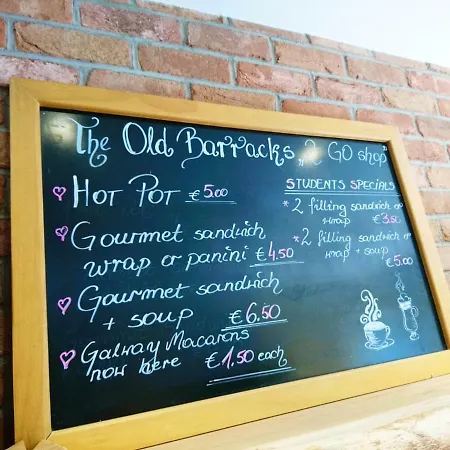 The Old Barracks „2 GO shop"
HOT POT €5.00
Gourmet sandwich
wrap or panini €4.50
Gourmet sandwich
+ soup €6.50
Galway Macarons
now here €1.50 each
STUDENTS SPECIALS
* 2 filling sandwich or
wrap €3.50
* 2 filling sandwich or
wrap + soup
€5.00